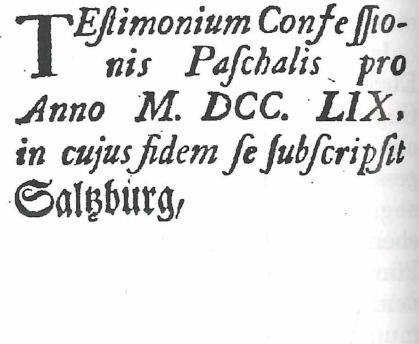 TEſtimonium Confeſſio-
nis Paſchalis pro
Anno M. DCC. LIX.
in cujus fidem ſe ſubſcripſit
Saltzburg,